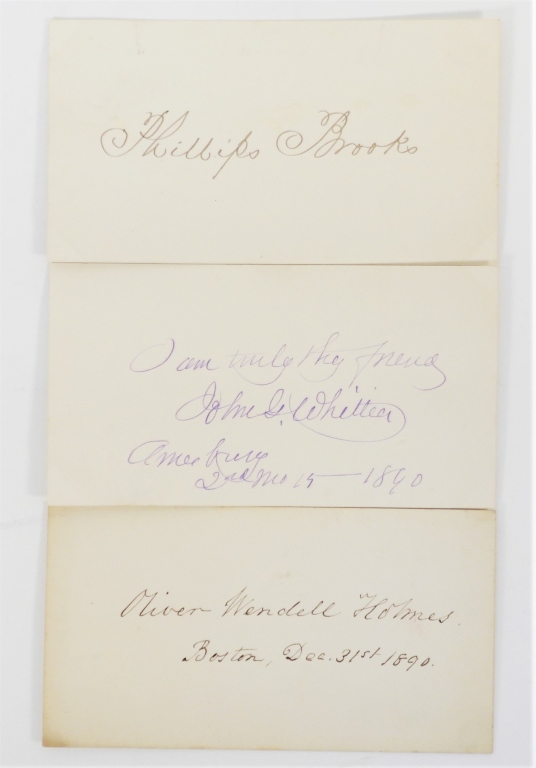 Phillips Brooks
I am truly thy friend
John G. Whittier
Amesbury
2nd Mo 15 — 1890
Oliver Wendell Holmes.
Boston, Dec. 31st 1890.